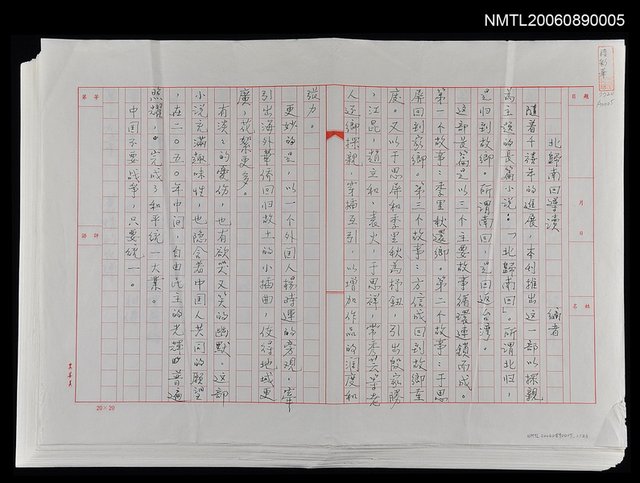 NMTL20060890005
北歸南回導讀
編者
隨著千禧年的進展，本刊推出這一部以探親
為主題的長篇小說：「北歸南回」。所謂北歸，
是歸到故鄉。所謂南回，是回返台灣。
這部長篇是以三個主要故事循環連鎖而成。
第一個故事：季里秋還鄉。第二個故事：于思
屏回到家鄉。第三個故事：方信成回到故鄉
度。又以于思屏和季里秋為抒鈕，引出殷家勝
、江昆，趙立和、袁火，于思祥，常
人還鄉探親，穿插互引，以增加作品的深度和
張力。
更妙的是，以一個外國人楊時運的旁觀，牽
引出海外華僑回歸故土的小插曲，使得地域更
廣，花絮更多。
有淡淡的憂傷，也有欲哭又笑的幽默，這部
小說充滿趣味性，也隱含著中國人共同的願望
，在二０五０年中間，自由民主的光輝曰普遍
照耀，。完成了和平統一大業。
中國不要戰爭，只要統一。
題目
月
日
姓名
20×20